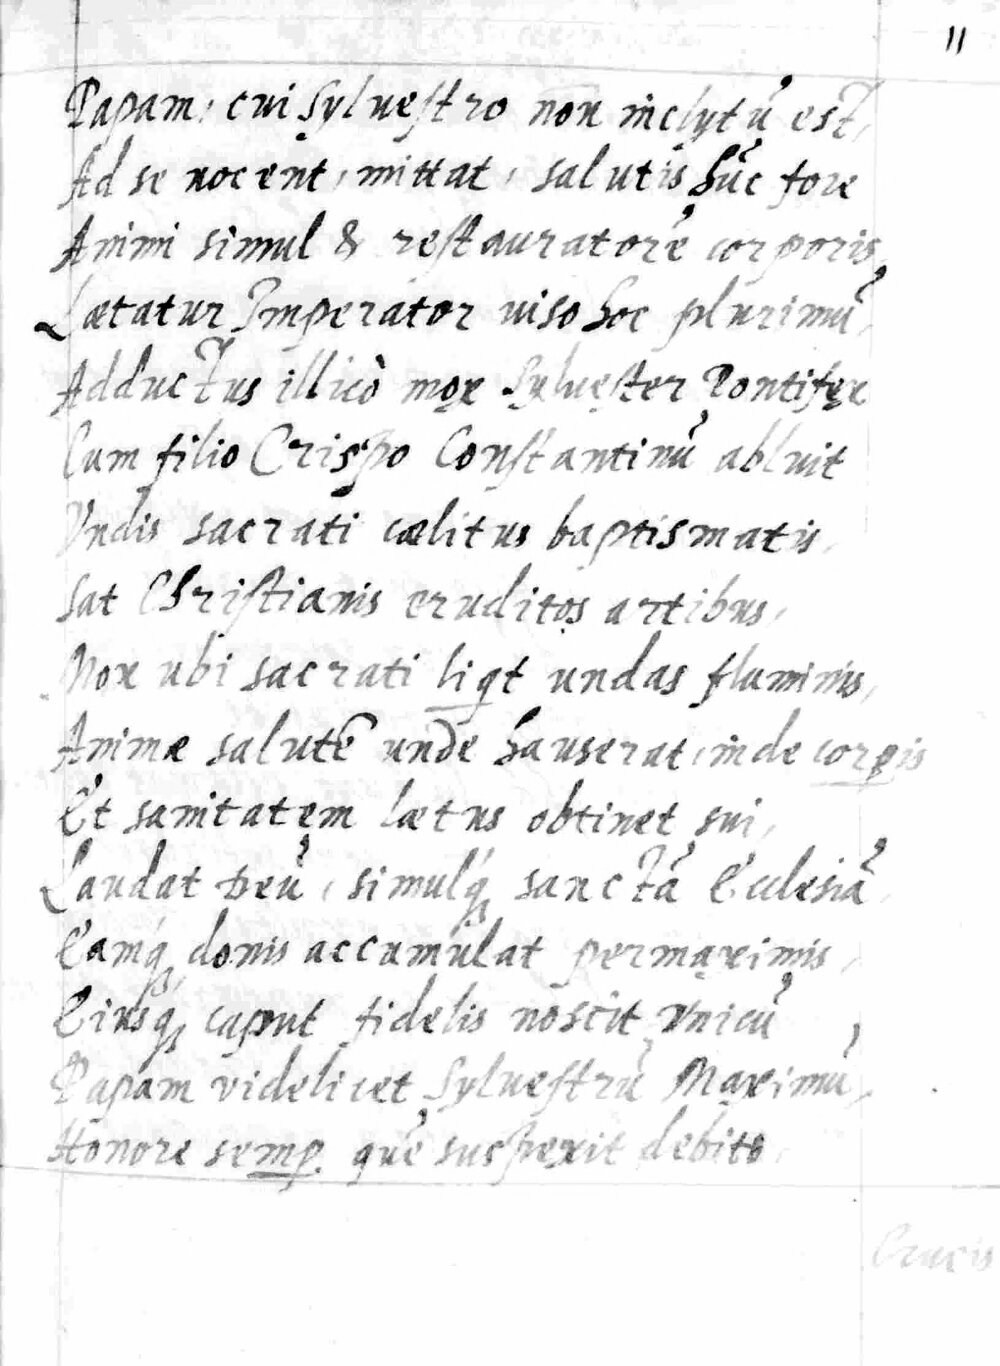 11
Papam, cui Syluestro non inclytũ est,
Ad se nocent, mittat, salutis hũc fore
Animi simul & restauratorẽ corporis,
Lætatur Imperator uiso hoc plurimũ,
Adductus illicò mox Syluester Pontifex
Cum filio Crispo Constantinũ abluit
Vndis sacrati cælitus baptismatis,
Sat Christianis eruditos artibus,
Mox ubi sacrati liqt undas fluminis,
Animæ salutẽ unde hauserat, inde corpis
Et sanitatem lætus obtinet sui,
Laudat Deũ, simulq́ sanctã Ecclesiã,
Eamq́ donis accumulat permaximis,
Eiusq́ caput fidelis noscit Vnicũ
Papam videlicet Syluestrũ Maximũ,
Honore semp quẽ suspexit debito,
Crucis